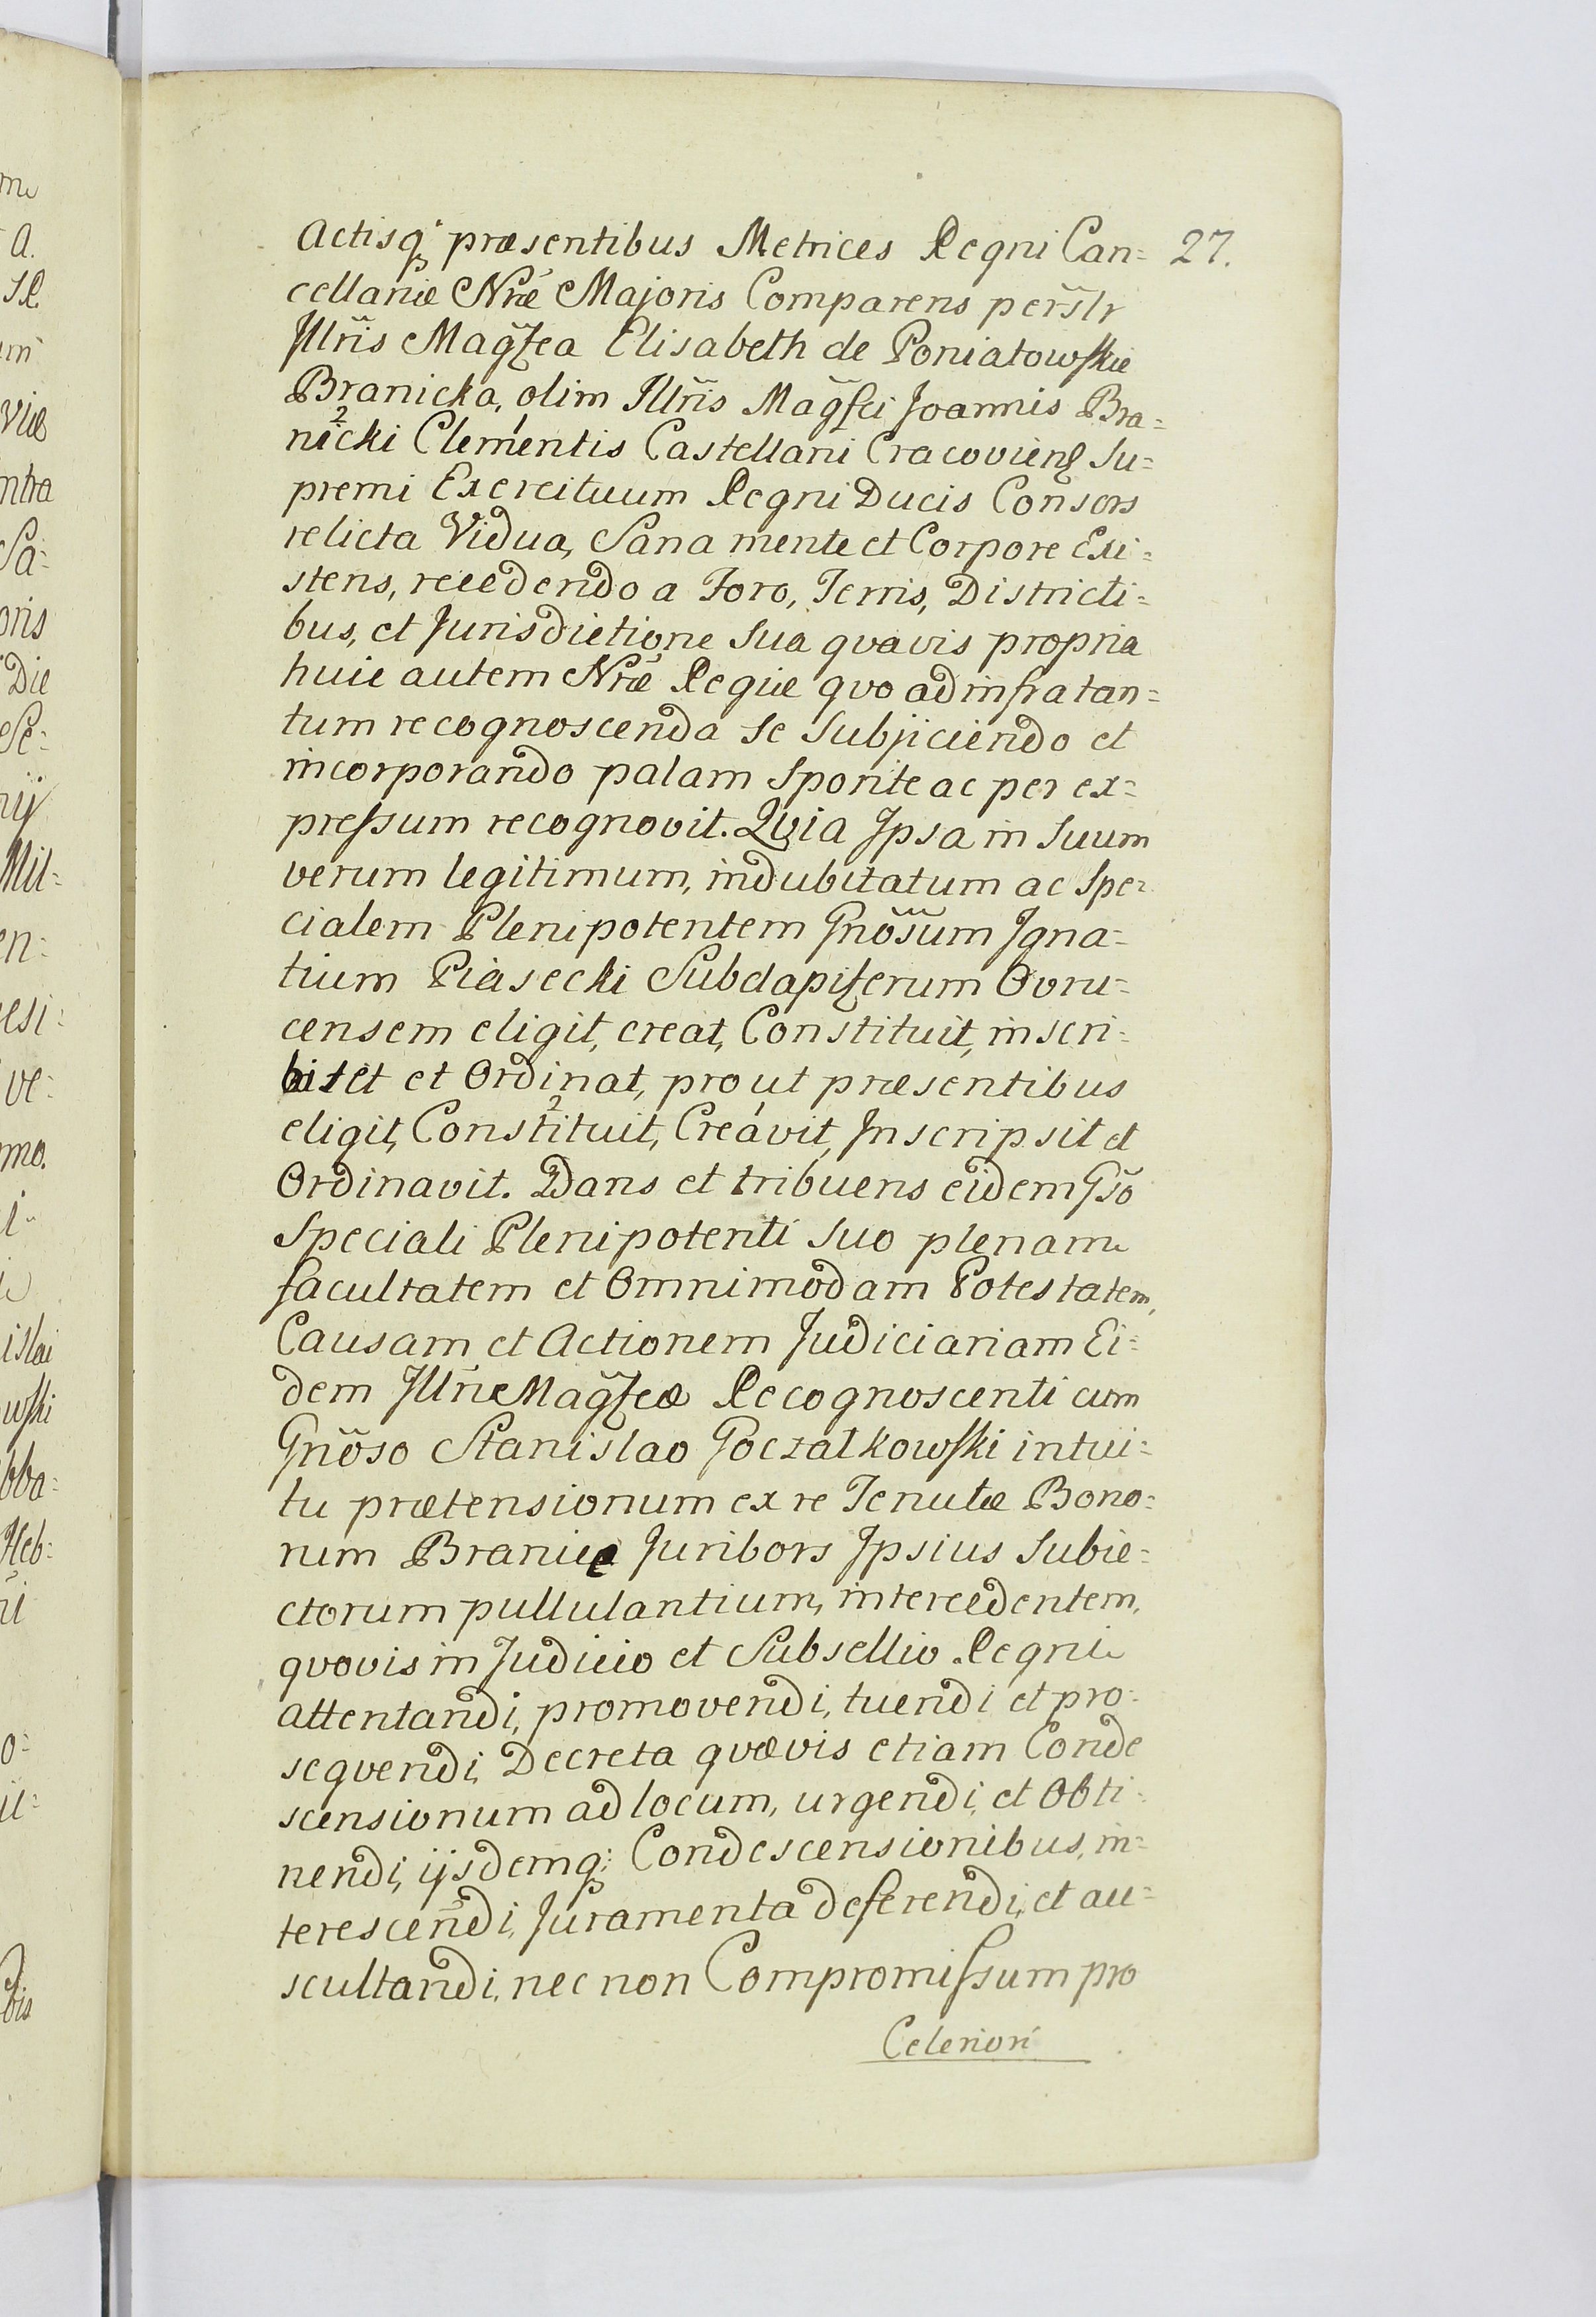 Actisq; præsentibus Metrices Regni Can= 27.
cellariæ Nræ Majoris Comparens persᷤlr
Illris Magfca Elisabeth de Poniatowskie
Branicka, olim Illris Magfci Joannis Bra=
2 1
nicki Clementis Castellani Cracoviens Su=
premi Exercituum Regni Ducis Consors
relicta Vidua, Sana mente et Corpore Exi=
stens, recedendo a Foro, Terris, Districti=
bus, et Jurisdictione Sua qvavis propria
huic autem Nræ Regiæ qvo ad infra tan=
tum recognoscenda se Subjiciendo et
incorporando palam Sponte ac per ex=
preſsum recognovit. Qvia Ipsa in Suum
verum legitimum, indubitatum ac Spe=
cialem Plenipotentem Gnosum Igna=
tium Piasecki Subdapiferum Ovru=
censem eligit, creat, Constituit, inscri=
bit et Ordinat, prout præsentibus
2 1
eligit, Constituit, Creavit, Inscripsit et
Ordinavit. Dans et tribuens eidem Gso
Speciali Plenipotenti Suo plenam
facultatem et Omnimodam Potestatem,
Causam et Actionem Judiciariam Ei=
dem Illri Magfcæ Recognoscenti cum
Gnoso Stanislao Goczalkowski intui=
tu prætensionum ex re Tenutæ Bono=
rum Branice Juribors Ipsius Subie=
ctorum pullulantium, intercedentem,
qvovis in Judicio et Subsellio Regni
attentandi, promovendi, tuendi et pro=
seqvendi, Decreta qvævis etiam Conde
scensionum ad locum, urgendi, et Obti=
nendi, ijsdemq; Condescensionibus, in=
terescendi, Juramenta deferendi, et au=
scultandi, nec non Compromiſsum pro
Celeriori